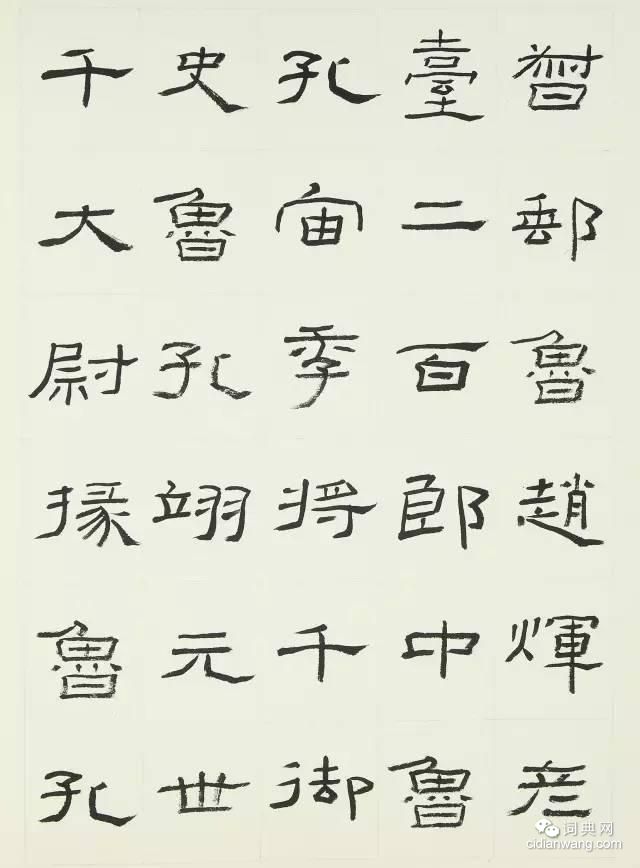 督郵魯趙煇彦
臺二百郎中魯
孔宙季将千御
史魯孔翊元世
千大尉掾魯孔
词典网
cidianwang.com